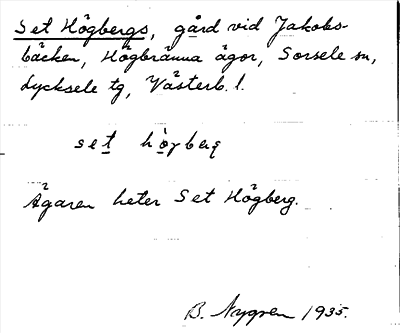 Set Högbergs, gård vid Jakobs-
bäcken, Högbränna ägor, Sorsele sn,
Lycksele tg, Västerb. l.
set högberg
Ägaren heter Set Högberg.
B. Nygren 1935.